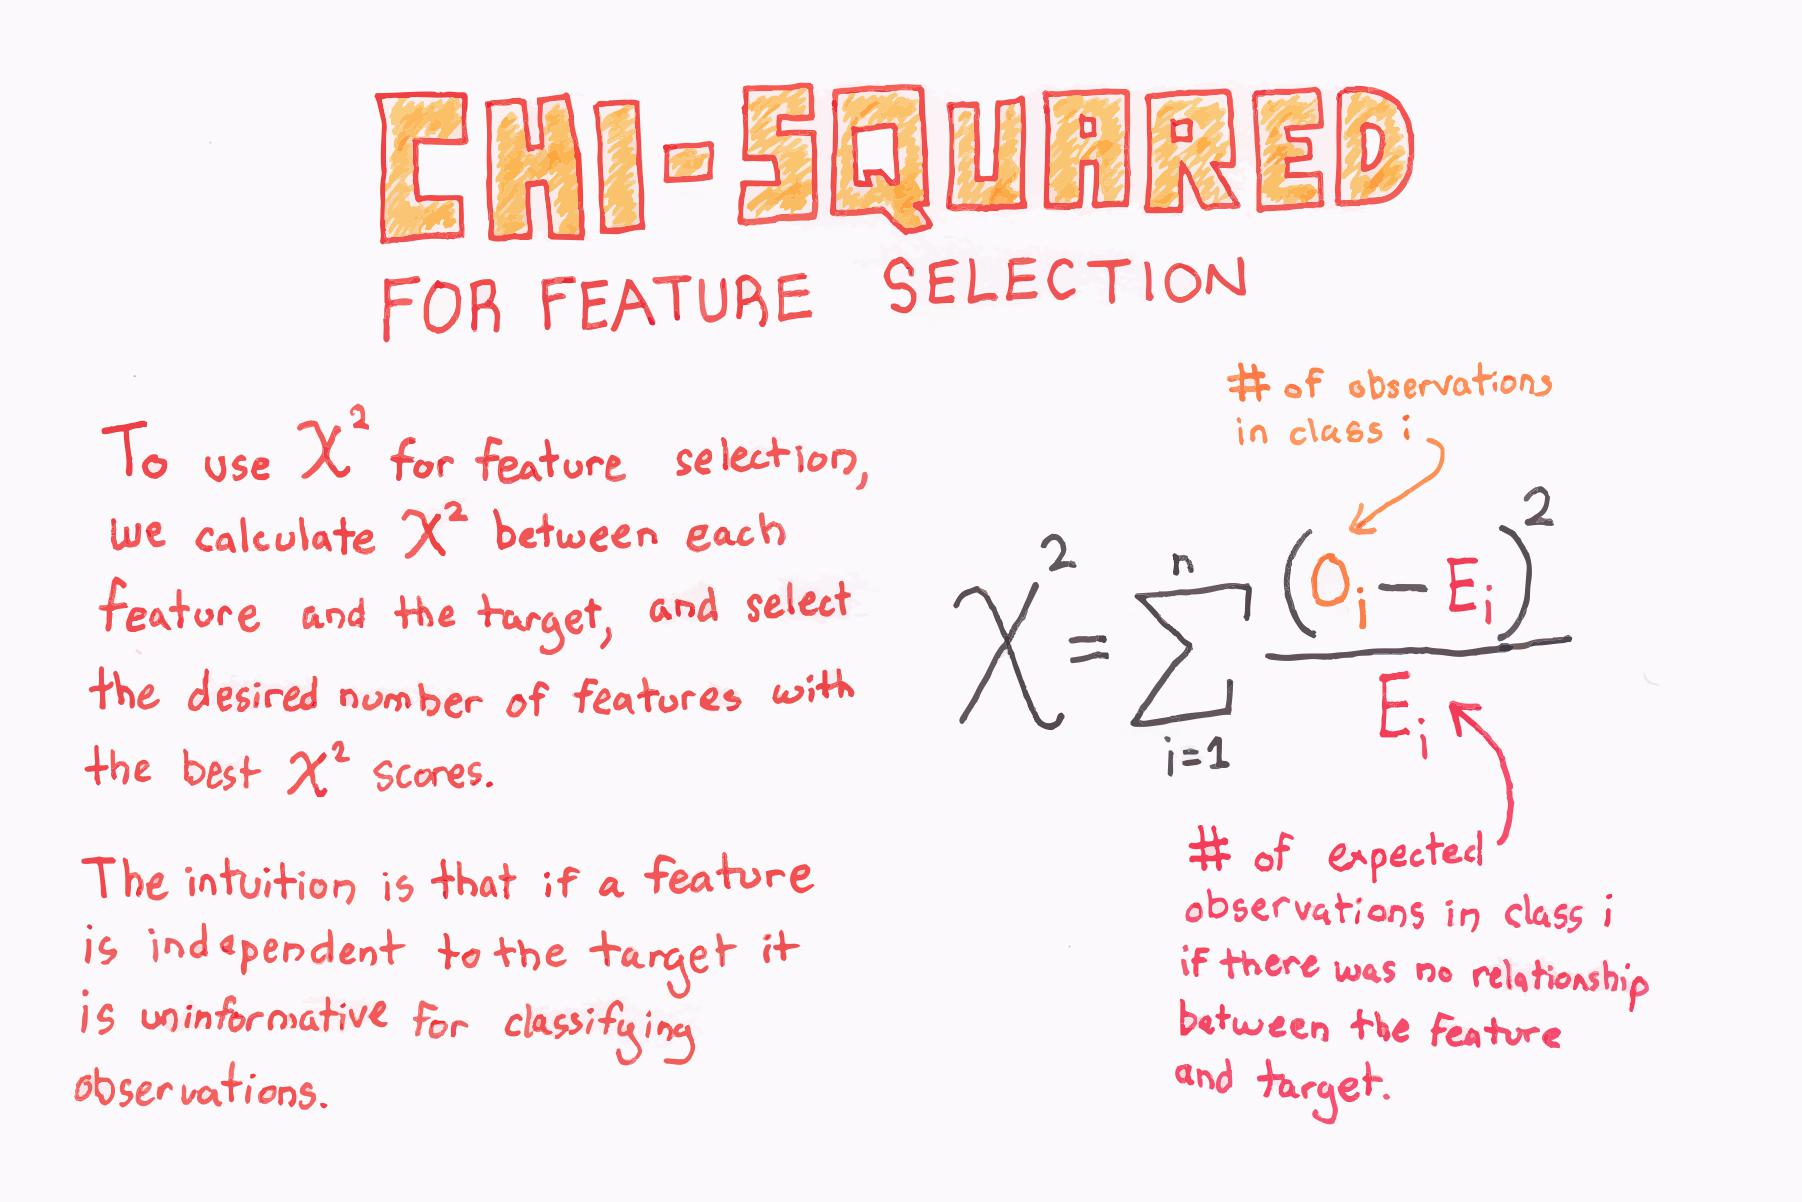 CHI-SQUARED
FOR FEATURE SELECTION
To use χ² for feature selection,
we calculate χ² between each
feature and the target, and select
the desired number of features with
the best χ² scores.
The intuition is that if a feature
is independent to the target it
is uninformative for classifying
observations.
# of observations
in class i
χ² = Σ (Oᵢ − Eᵢ)² / Eᵢ
n
i=1
# of expected
observations in class i
if there was no relationship
between the feature
and target.